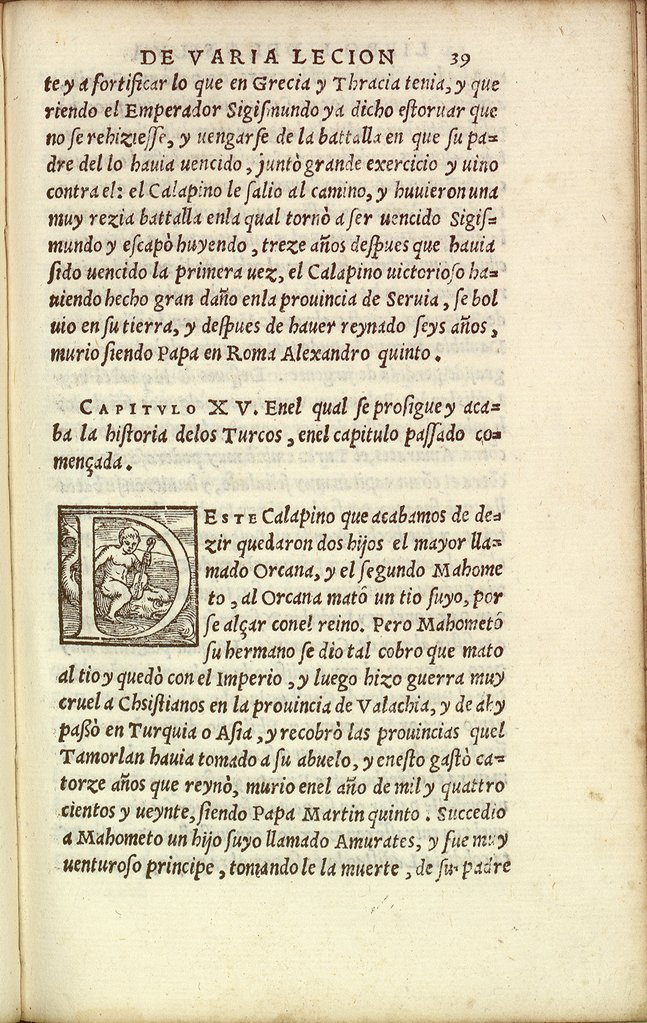 DE VARIA LECION 39
te y a fortificar lo que en Grecia y Thracia tenia, y que
riendo el Emperador Sigiſmundo ya dicho eſtoruar que
no ſe rehizieſſe, y uengarſe de la battalla en que ſu pa=
dre del lo hauia uencido, juntò grande exercicio y uino
contra el: el Calapino le ſalio al camino, y huuieron una
muy rezia battalla enla qual tornò a ſer uencido Sigiſ=
mundo y eſcapò huyendo, treze años deſpues que hauia
ſido uencido la primera uez, el Calapino uictorioſo ha=
uiendo hecho gran daño enla prouincia de Seruia, ſe bol
uio en ſu tierra, y deſpues de hauer reynado ſeys años,
murio ſiendo Papa en Roma Alexandro quinto.
CAPITVLO XV. Enel qual ſe proſigue y aca=
ba la hiſtoria delos Turcos, enel capitulo paſſado co=
mençada.
DESTE Calapino que acabamos de de=
zir quedaron dos hijos el mayor lla=
mado Orcana, y el ſegundo Mahome
to, al Orcana matô un tio ſuyo, por
ſe alçar conel reino. Pero Mahometô
ſu hermano ſe dio tal cobro que mato
al tio y quedò con el Imperio, y luego hizo guerra muy
cruel a Chsiſtianos en la prouincia de Valachia, y de ahy
paſſò en Turquia o Aſia, y recobrò las prouincias quel
Tamorlan hauia tomado a ſu abuelo, y eneſto gaſtò ca=
torze años que reynò, murio enel año de mil y quattro
cientos y ueynte, ſiendo Papa Martin quinto. Succedio
a Mahometo un hijo ſuyo llamado Amurates, y fue muy
uenturoſo principe, tomando le la muerte, de ſu padre